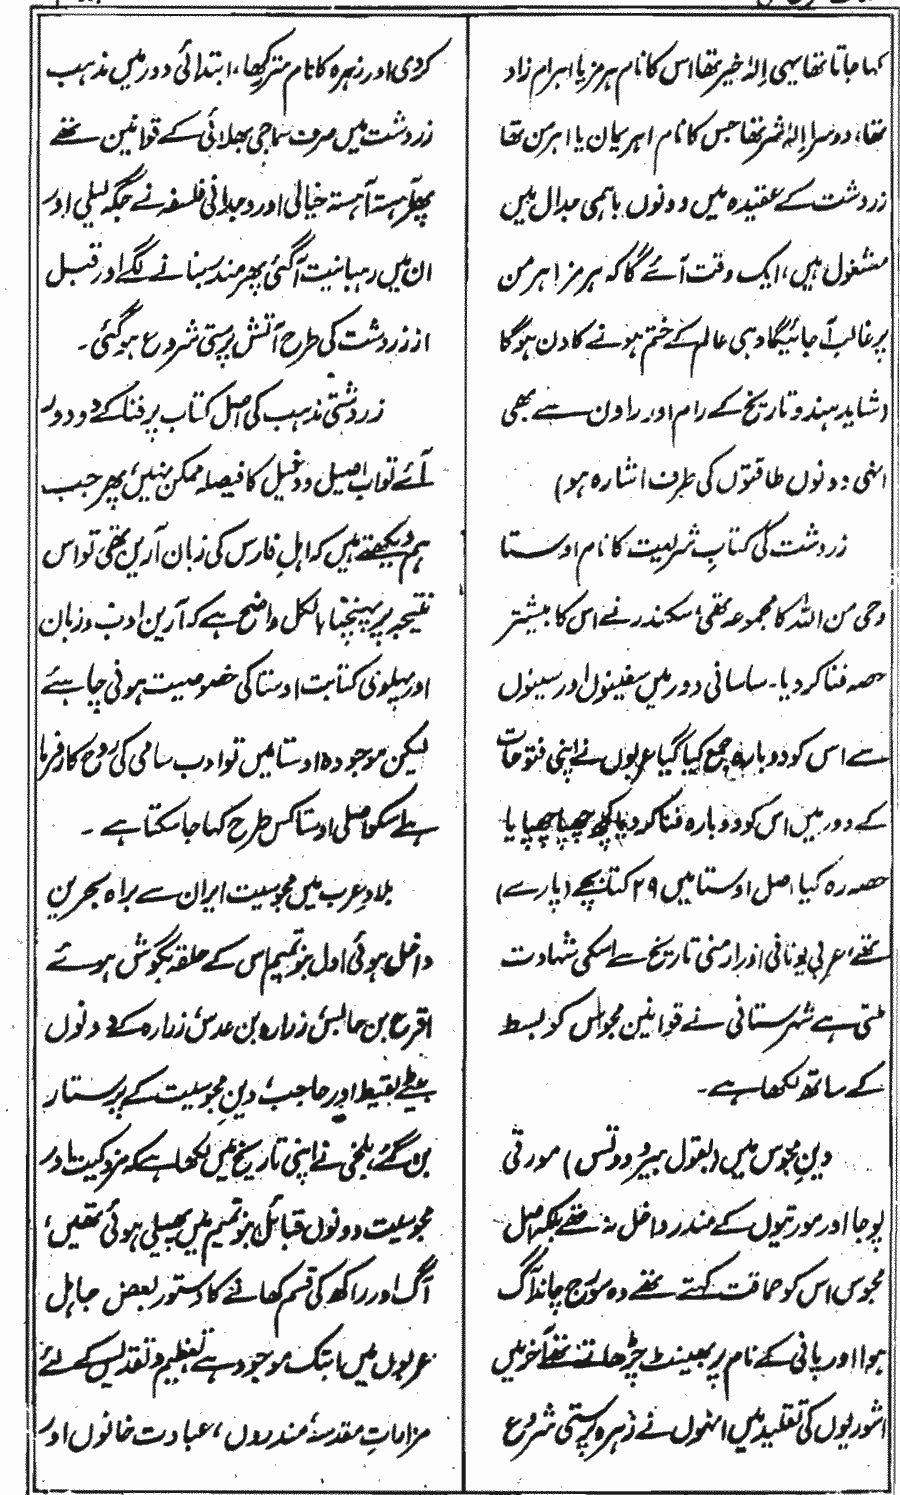 کہا جاتا تھا یہی اِلٰہ خیر تھا اس کا نام ہرمز یا اہرام زاد
تھا، دوسرا اِلٰہ شر تھا جس کا نام اہریمان یا اہرمن تھا
زردشت کے عقیدہ میں دونوں باہمی جدال میں
مشغول ہیں، ایک وقت آئے گا کہ ہرمز اہرمن
پر غالب آجائیگا وہی عالم کے ختم ہونے کا دن ہوگا
(شاید ہندو تاریخ کے رام اور راون سے بھی
انہی دونوں طاقتوں کی طرف اشارہ ہو)
زردشت کی کتابِ شریعت کا نام اوستا
وحی من اللہ کا مجموعہ تھی، سکندر نے اس کا بیشتر
حصہ فنا کردیا۔ ساسانی دور میں سفینوں اور سینوں
سے اس کو دوبارہ جمع کیا گیا عربوں نے اپنی فتوحات
کے دور میں اس کو دوبارہ فنا کردیا کچھ چھپا چھپایا
حصہ رہ گیا اصل اوستا میں ۲۹ کتابچے (پارے)
تھے، عربی یونانی اور ارمنی تاریخ سے اسکی شہادت
ملتی ہے شہرستانی نے قوانین مجوس کو بسط
کے ساتھ لکھا ہے۔
دینِ مجوس میں (بقول ہیرودوتس) مورتی
پوجا اور مورتیوں کے مندر داخل نہ تھے بلکہ اصل
مجوس اس کو حماقت کہتے تھے وہ سورج چاند آگ
ہوا اور پانی کے نام پر بھینٹ چڑھاتے تھے آخر میں
اشوریوں کی تقلید میں انہوں نے زہرہ پرستی شروع
کردی اور زہرہ کا نام متر رکھا، ابتدائی دور میں مذہب
زردشت میں صرف سماجی بھلائی کے قوانین تھے
پھر آہستہ آہستہ خیالی اور وجدانی فلسفہ نے جگہ لیلی اور
ان میں رہبانیت آگئی پھر مندر بنانے لگے اور قبل
از زردشت کی طرح آتش پرستی شروع ہوگئی۔
زردشتی مذہب کی اصل کتاب پر فنا کے دو دور
آئے تو اب اصیل و دخیل کا فیصلہ ممکن نہیں، پھر جب
ہم دیکھتے ہیں کہ اہلِ فارس کی زبان آرین تھی تو اس
نتیجہ پر پہنچنا بالکل واضح ہے کہ آرین ادب و زبان
اور پہلوی کتابت اوستا کی خصوصیت ہونی چاہیئے
لیکن موجودہ اوستا میں تو ادب سامی کی روح کارفرما
ہے اسکو اصلی اوستا کس طرح کہا جاسکتا ہے۔
بلادِ عرب میں مجوسیت ایران سے براہ بحرین
داخل ہوئی اول بنو تمیم اس کے حلقہ بگوش ہوئے
اقرع بن حابس، زرارہ بن عدس، زرارہ کے دونوں
بیٹے لقیط اور حاجب، دینِ مجوسیت کے پرستار
بن گئے، بلخی نے اپنی تاریخ میں لکھا ہے کہ مزدکیت اور
مجوسیت دونوں قبائل بنو تمیم میں پھیلی ہوئی تھیں،
آگ اور راکھ کی قسم کھانے کا دستور بعض جاہل
عربوں میں ابتک موجود ہے تعظیم و تقدیس کے لئے
مزاراتِ مقدسہ، مندروں، عبادت خانوں اور